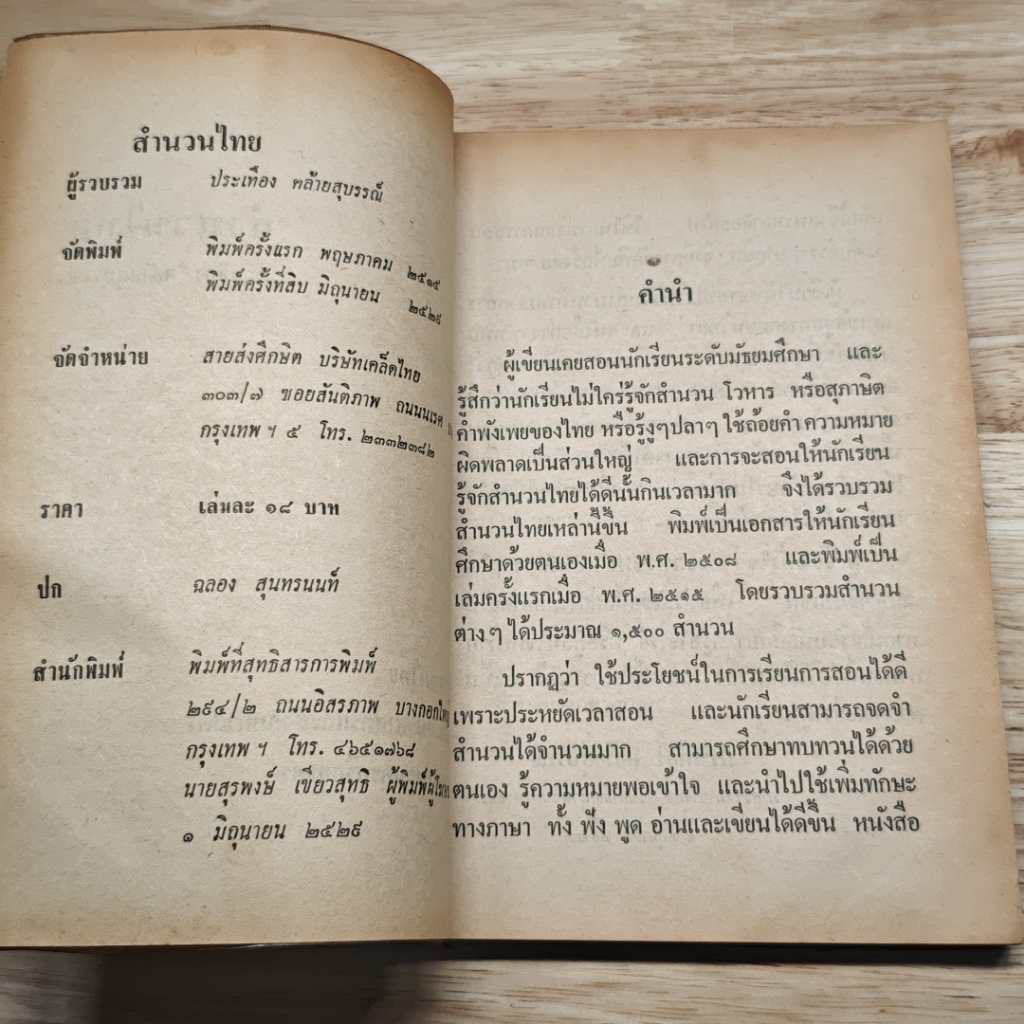 สำนวนไทย
ผู้รวบรวม ประเทือง คล้ายสุบรรณ์
จัดพิมพ์ พิมพ์ครั้งแรก พฤษภาคม ๒๕๑๕
พิมพ์ครั้งที่สิบ มิถุนายน ๒๕๒๙
จัดจำหน่าย สายส่งศึกษิต บริษัทเคล็ดไทย
๓๐๓/๗ ซอยสันติภาพ ถนนนเรศ
กรุงเทพ ฯ ๕ โทร. ๒๓๓๒๓๘๒
ราคา เล่มละ ๑๘ บาท
ปก ฉลอง สุนทรนนท์
สำนักพิมพ์ พิมพ์ที่สุทธิสารการพิมพ์
๒๙๔/๒ ถนนอิสรภาพ บางกอกใหญ่
กรุงเทพ ฯ โทร. ๔๖๕๑๗๖๘
นายสุรพงษ์ เขียวสุทธิ ผู้พิมพ์ผู้
๑ มิถุนายน ๒๕๒๙
คำนำ
ผู้เขียนเคยสอนนักเรียนระดับมัธยมศึกษา และ
รู้สึกว่านักเรียนไม่ใคร่รู้จักสำนวน โวหาร หรือสุภาษิต
คำพังเพยของไทย หรือรู้งูๆปลาๆ ใช้ถ้อยคำ ความหมาย
ผิดพลาดเป็นส่วนใหญ่ และการจะสอนให้นักเรียน
รู้จักสำนวนไทยได้ดีนั้นกินเวลามาก จึงได้รวบรวม
สำนวนไทยเหล่านี้ขึ้น พิมพ์เป็นเอกสารให้นักเรียน
ศึกษาด้วยตนเองเมื่อ พ.ศ. ๒๕๐๘ และพิมพ์เป็น
เล่มครั้งแรกเมื่อ พ.ศ. ๒๕๑๕ โดยรวบรวมสำนวน
ต่างๆ ได้ประมาณ ๑,๕๐๐ สำนวน
ปรากฏว่า ใช้ประโยชน์ในการเรียนการสอนได้ดี
เพราะประหยัดเวลาสอน และนักเรียนสามารถจดจำ
สำนวนได้จำนวนมาก สามารถศึกษาทบทวนได้ด้วย
ตนเอง รู้ความหมายพอเข้าใจ และนำไปใช้เพิ่มทักษะ
ทางภาษา ทั้ง ฟัง พูด อ่านและเขียนได้ดีขึ้น หนังสือ